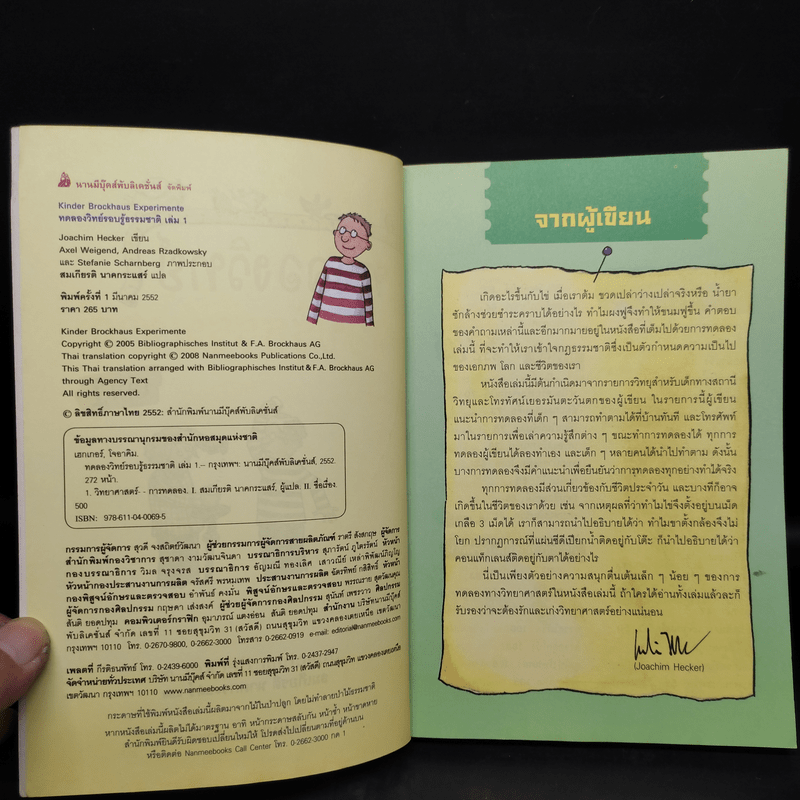 นานมีบุ๊คส์พับลิเคชั่นส์ จัดพิมพ์
Kinder Brockhaus Experimente
ทดลองวิทย์รอบรู้ธรรมชาติ เล่ม 1
Joachim Hecker เขียน
Axel Weigend, Andreas Rzadkowsky
และ Stefanie Scharnberg ภาพประกอบ
สมเกียรติ นาคกระแสร์ แปล
พิมพ์ครั้งที่ 1 มีนาคม 2552
ราคา 265 บาท
Kinder Brockhaus Experimente
Copyright © 2005 Bibliographisches Institut & F.A. Brockhaus AG
Thai translation copyright © 2008 Nanmeebooks Publications Co.,Ltd.
This Thai translation arranged with Bibliographisches Institut & F.A. Brockhaus AG
through Agency Text
All rights reserved.
© ลิขสิทธิ์ภาษาไทย 2552: สำนักพิมพ์นานมีบุ๊คส์พับลิเคชั่นส์
ข้อมูลทางบรรณานุกรมของสำนักหอสมุดแห่งชาติ
เฮกเกอร์, โจอาคิม.
ทดลองวิทย์รอบรู้ธรรมชาติ เล่ม 1.-- กรุงเทพฯ: นานมีบุ๊คส์พับลิเคชั่นส์, 2552.
272 หน้า.
1. วิทยาศาสตร์--การทดลอง. I. สมเกียรติ นาคกระแสร์, ผู้แปล. II. ชื่อเรื่อง.
500
ISBN: 978-611-04-0069-5
กรรมการผู้จัดการ สุวดี จงสถิตย์วัฒนา ผู้ช่วยกรรมการผู้จัดการสายผลิตภัณฑ์ ราตรี สังสกฤษ ผู้จัดการ
สำนักพิมพ์กองวิชาการ สุชาดา งามวัฒนจินดา บรรณาธิการบริหาร สุภารัตน์ ภูไตรรัตน์ หัวหน้า
กองบรรณาธิการ วิมล จรุงจรส บรรณาธิการ อัญมณี ทองเลิศ เสาวณีย์ เหล่าพิพัฒน์ภิญโญ
หัวหน้ากองประสานงานการผลิต จรัสศรี พรหมเทพ ประสานงานการผลิต ฉัตรทิพย์ กสิสิทธิ์ หัวหน้า
กองพิสูจน์อักษรและตรวจสอบ อำพันธ์ คงมั่น พิสูจน์อักษรและตรวจสอบ พรรณราย สุตวัฒนคุณ
ผู้จัดการกองศิลปกรรม กฤษดา เส่งสงค์ ผู้ช่วยผู้จัดการกองศิลปกรรม สุนันท์ เพชรวาว ศิลปกรรม
สันติ ยอดปทุม คอมพิวเตอร์กราฟิก อุมาภรณ์ แดงอ่อน สันติ ยอดปทุม สำนักงาน บริษัทนานมีบุ๊คส์
พับลิเคชั่นส์ จำกัด เลขที่ 11 ซอยสุขุมวิท 31 (สวัสดี) ถนนสุขุมวิท แขวงคลองเตยเหนือ เขตวัฒนา
กรุงเทพฯ 10110 โทร. 0-2670-9800, 0-2662-3000 โทรสาร 0-2662-0919 e-mail: editorial@nanmeebooks.com
เพลตที่ กีรติธนพัทธ์ โทร. 0-2439-6000 พิมพ์ที่ รุ่งแสงการพิมพ์ โทร. 0-2437-2947
จัดจำหน่ายทั่วประเทศ บริษัท นานมีบุ๊คส์ จำกัด เลขที่ 11 ซอยสุขุมวิท 31 (สวัสดี) ถนนสุขุมวิท แขวงคลองเตยเหนือ
เขตวัฒนา กรุงเทพฯ 10110 www.nanmeebooks.com
กระดาษที่ใช้พิมพ์หนังสือเล่มนี้ผลิตมาจากไม้ในป่าปลูก โดยไม่ทำลายป่าไม้ธรรมชาติ
หากหนังสือเล่มนี้ผลิตไม่ได้มาตรฐาน อาทิ หน้ากระดาษสลับกัน หน้าซ้ำ หน้าขาดหาย
สำนักพิมพ์ยินดีรับผิดชอบเปลี่ยนใหม่ให้ โปรดส่งไปเปลี่ยนตามที่อยู่ด้านบน
หรือติดต่อ Nanmeebooks Call Center โทร. 0-2662-3000 กด 1
จากผู้เขียน
เกิดอะไรขึ้นกับไข่ เมื่อเราต้ม ขวดเปล่าว่างเปล่าจริงหรือ น้ำยา
ซักล้างช่วยชำระคราบได้อย่างไร ทำไมผงฟูจึงทำให้ขนมฟูขึ้น คำตอบ
ของคำถามเหล่านี้และอีกมากมายอยู่ในหนังสือที่เต็มไปด้วยการทดลอง
เล่มนี้ ที่จะทำให้เราเข้าใจกฎธรรมชาติซึ่งเป็นตัวกำหนดความเป็นไป
ของเอกภพ โลก และชีวิตของเรา
หนังสือเล่มนี้มีต้นกำเนิดมาจากรายการวิทยุสำหรับเด็กทางสถานี
วิทยุและโทรทัศน์เยอรมันตะวันตกของผู้เขียน ในรายการนี้ผู้เขียน
แนะนำการทดลองที่เด็ก ๆ สามารถทำตามได้ที่บ้านทันที และโทรศัพท์
มาในรายการเพื่อเล่าความรู้สึกต่าง ๆ ขณะทำการทดลองได้ ทุกการ
ทดลองผู้เขียนได้ลองทำเอง และเด็ก ๆ หลายคนได้นำไปทำตาม ดังนั้น
บางการทดลองจึงมีคำแนะนำเพื่อยืนยันว่าการทดลองทุกอย่างทำได้จริง
ทุกการทดลองมีส่วนเกี่ยวข้องกับชีวิตประจำวัน และบางทีก็อาจ
เกิดขึ้นในชีวิตของเราด้วย เช่น จากเหตุผลที่ว่าทำไมไข่จึงตั้งอยู่บนเม็ด
เกลือ 3 เม็ดได้ เราก็สามารถนำไปอธิบายได้ว่า ทำไมขาตั้งกล้องจึงไม่
โยก ปรากฏการณ์ที่แผ่นซีดีเปียกน้ำติดอยู่กับโต๊ะ ก็นำไปอธิบายได้ว่า
คอนแท็กเลนส์ติดอยู่กับตาได้อย่างไร
นี่เป็นเพียงตัวอย่างความสนุกตื่นเต้นเล็ก ๆ น้อย ๆ ของการ
ทดลองทางวิทยาศาสตร์ในหนังสือเล่มนี้ ถ้าใครได้อ่านทั้งเล่มแล้วละก็
รับรองว่าจะต้องรักและเก่งวิทยาศาสตร์อย่างแน่นอน
(Joachim Hecker)